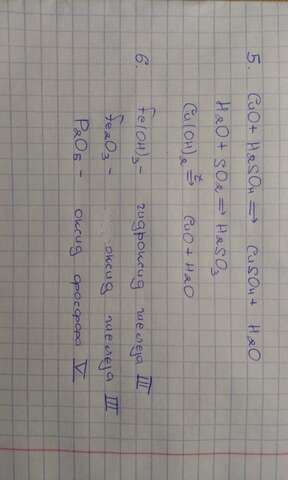 5. CuO + H2SO4 ⇒ CuSO4 + H2O
H2O + SO2 ⇒ H2SO3
Cu(OH)2 ⇒ CuO + H2O
6. Fe(OH)3 - гидроксид железа III
Fe2O3 - оксид железа III
P2O5 - оксид фосфора V